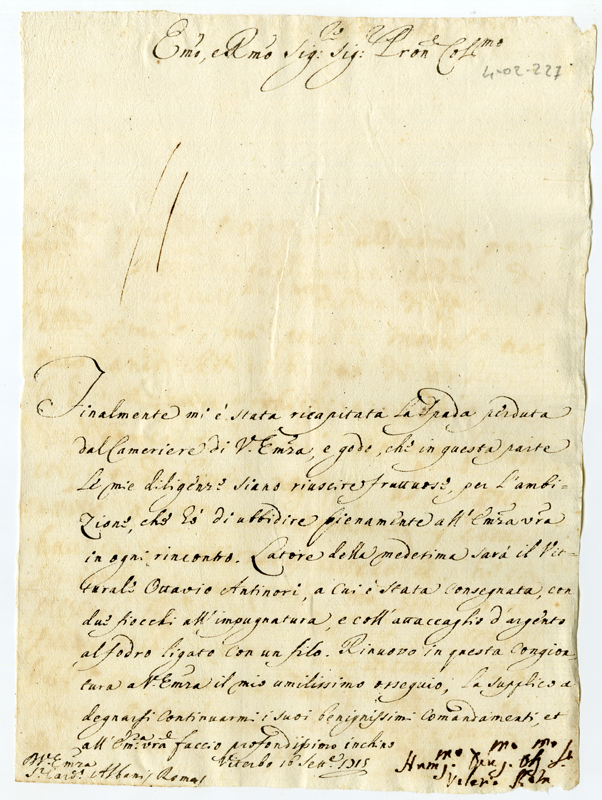 Emo, e Rmo Sig: Sig: Pron Colmo
4-02-227
Finalmente mi è stata ricapitata la Spada perduta
dal Cameriere di V. Emza, e godo, che in questa parte
le mie diligenze siano riuscire fruttuose, per l'ambi-
zione, che hò di ubbidire pienamente all' Emza vra
in ogni rincontro. Latore della medesima sarà il Vet-
turale Ottavio Antinori, a cui è stata consegnata, con
due fiocchi all'impugnatura, e coll'attaccaglio d'argento
al fodro ligato con un filo. Rinuovo in questa congion-
tura a V. Emza il mio umilissimo ossequio, la supplico a
degnarsi continuarmi i suoi benignissimi comandamenti, et
all' Emza vra faccio profondissimo inchino
Viterbo 16 Sett. 1715
V. Emza
Sr Card. Albani Roma